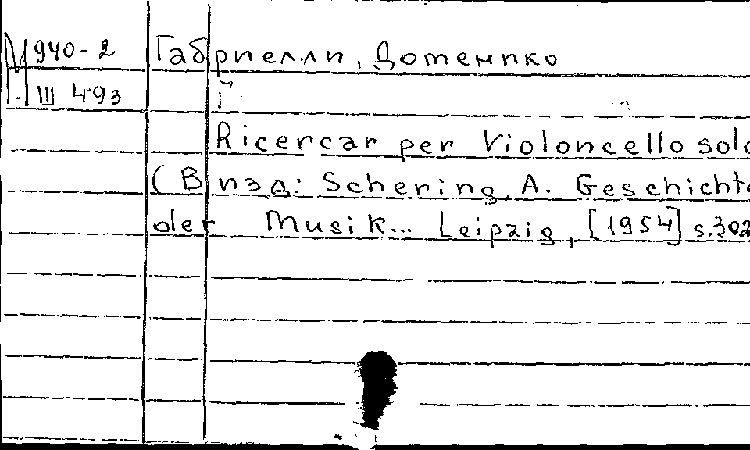 М 940-2 Габриелли, Доменико
III 493
Ricercar per Violoncello solo
(В изд: Schering, A. Geschichte
der Musik... Leipzig, [1954] s.302